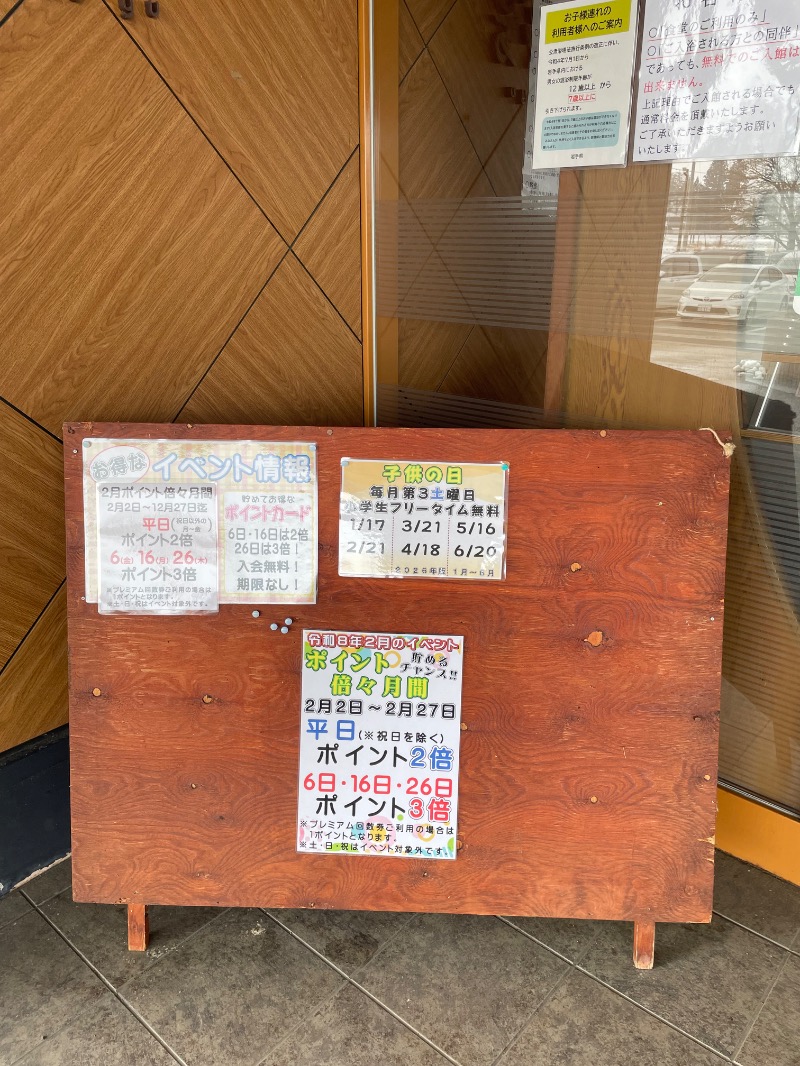 お子様連れの
利用者様へのご案内
公衆浴場法施行条例の改正に伴い、
令和4年7月1日から
岩手県内における
男女の混浴制限年齢が
12歳以上 から
7歳以上に
引き下げられます。
岩手県
○「食堂のご利用のみ」
○「ご入浴される方との同伴」
であっても、無料でのご入館は
出来ません。
上記理由でご入館される場合でも
通常料金を頂戴いたします。
ご了承いただきますようお願い
いたします。
お得な イベント情報
2月ポイント倍々月間
2月2日~12月27日迄
平日(祝日以外の月~金)
ポイント2倍
6(金) 16(月) 26(木)
ポイント3倍
※プレミアム回数券ご利用の場合は
1ポイントとなります。
※土・日・祝はイベント対象外です。
貯めてお得な
ポイントカード
6日・16日は2倍
26日は3倍!
入会無料!
期限なし!
子供の日
毎月第3土曜日
小学生フリータイム無料
1/17 3/21 5/16
2/21 4/18 6/20
2026年版 1月~6月
令和8年2月のイベント
ポイント 貯める
倍々月間 チャンス!!
2月2日~2月27日
平日(※祝日を除く)
ポイント2倍
6日・16日・26日
ポイント3倍
※プレミアム回数券ご利用の場合は
1ポイントとなります。
※土・日・祝はイベント対象外です。